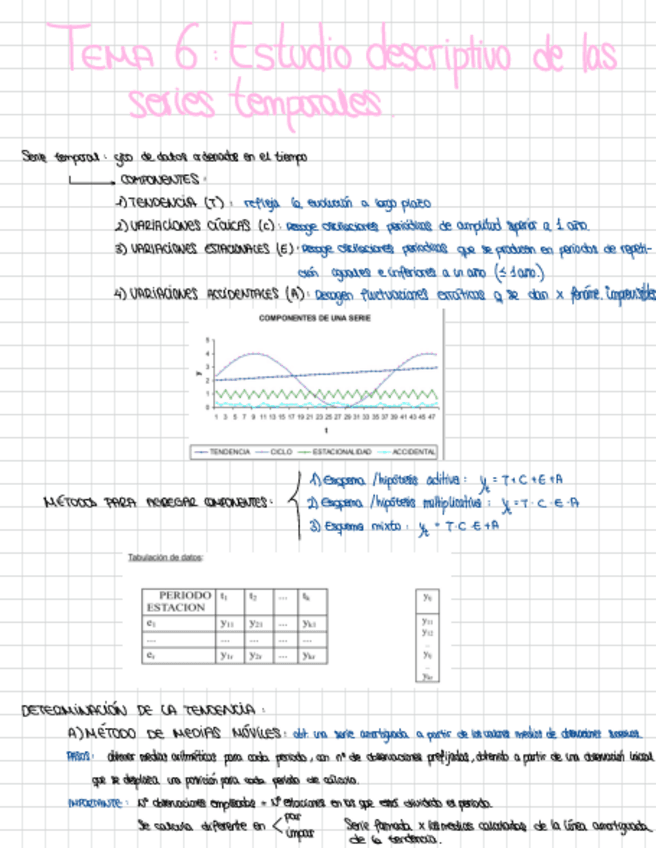 TEMA 6: Estudio descriptivo de las
series temporales.
Serie temporal: gpo de datos ordenados en el tiempo
COMPONENTES:
1) TENDENCIA (T): refleja la evolución a largo plazo
2) VARIACIONES CÍCLICAS (C): Recoge oscilaciones periódicas de amplitud superior a 1 año.
3) VARIACIONES ESTACIONALES (E): Recoge oscilaciones periódicas que se producen en periodos de repeti-
ción iguales e inferiores a un año (≤ 1 año.)
4) VARIACIONES ACCIDENTALES (A): Recogen fluctuaciones erráticas q se dan x fenóme. imprevisibles
COMPONENTES DE UNA SERIE
y
5
4
3
2
1
0
1 3 5 7 9 11 13 15 17 19 21 23 25 27 29 31 33 35 37 39 41 43 45 47
t
TENDENCIA CICLO ESTACIONALIDAD ACCIDENTAL
MÉTODOS PARA AGREGAR COMPONENTES:
1) Esquema /hipótesis aditiva: yt = T+C+E+A
2) Esquema /hipótesis multiplicativa: yt = T·C·E·A
3) Esquema mixto: yt = T·C·E+A
Tabulación de datos:
PERIODO t1 t2 ... tk
ESTACION
e1 y11 y21 ... yk1
... ... ... ... ...
er y1r y2r ... ykr
y11
y12
DETERMINACIÓN DE LA TENDENCIA:
A) MÉTODO DE MEDIAS MÓVILES: obt. una serie amortiguada a partir de los valores medios de observaciones sucesivas.
PASOS: obtener medias aritméticas para cada periodo, con nº de observaciones prefijadas, obtenido a partir de una observación inicial
que se desplaza una posición para cada periodo de cálculo.
IMPORTANTE: Nº observaciones empleadas = Nº estaciones en las que está dividido el periodo.
Se calcula diferente en par
impar
Serie formada x las medias calculadas de la línea amortiguada
de la tendencia.